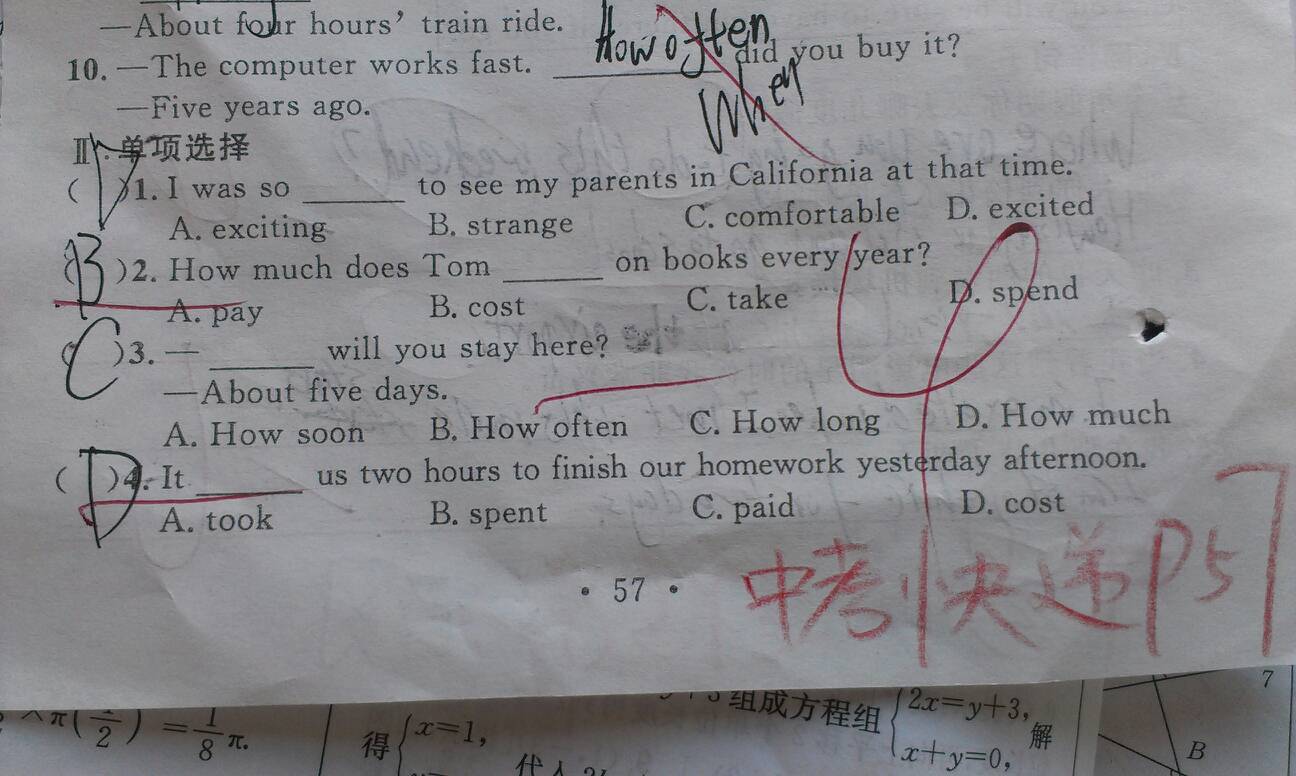 —About four hours' train ride.
How often
10. —The computer works fast. ________ did you buy it?
When
—Five years ago.
Ⅱ. 单项选择
(D)1. I was so ______ to see my parents in California at that time.
A. exciting B. strange C. comfortable D. excited
(B)2. How much does Tom ______ on books every year?
A. pay B. cost C. take D. spend
(C)3. — ______ will you stay here?
—About five days.
A. How soon B. How often C. How long D. How much
(D)4. It ______ us two hours to finish our homework yesterday afternoon.
A. took B. spent C. paid D. cost
· 57 ·
中考快递P57
π(1/2) = 1/8 π.
得 { x=1,
代入
组成方程组 { 2x=y+3,
x+y=0, 解
7
B